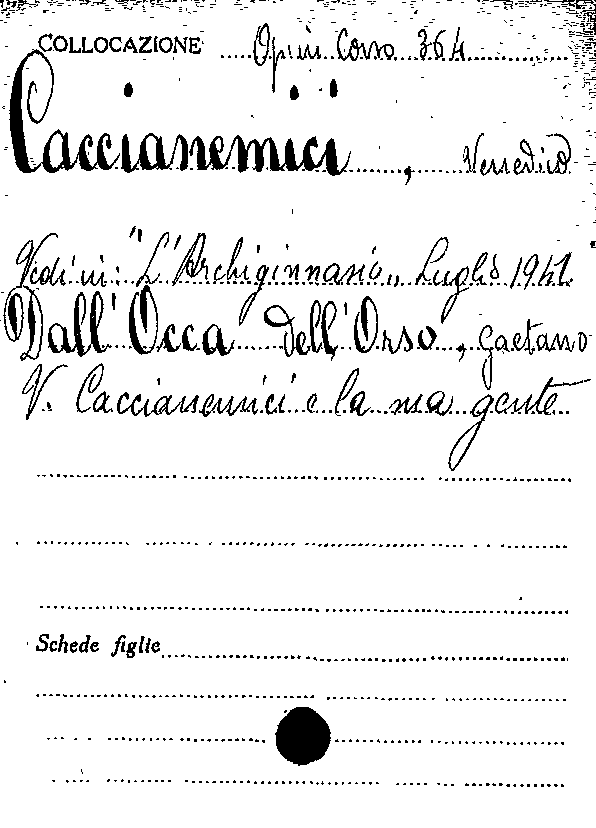 COLLOCAZIONE Opusc. Corso 364
Caccianemici, Venedico
Vedi in: "L'Archiginnasio„ Luglio 1941.
Dall'Occa dell'Orso, Gaetano
V. Caccianemici e la sua gente
Schede figlie